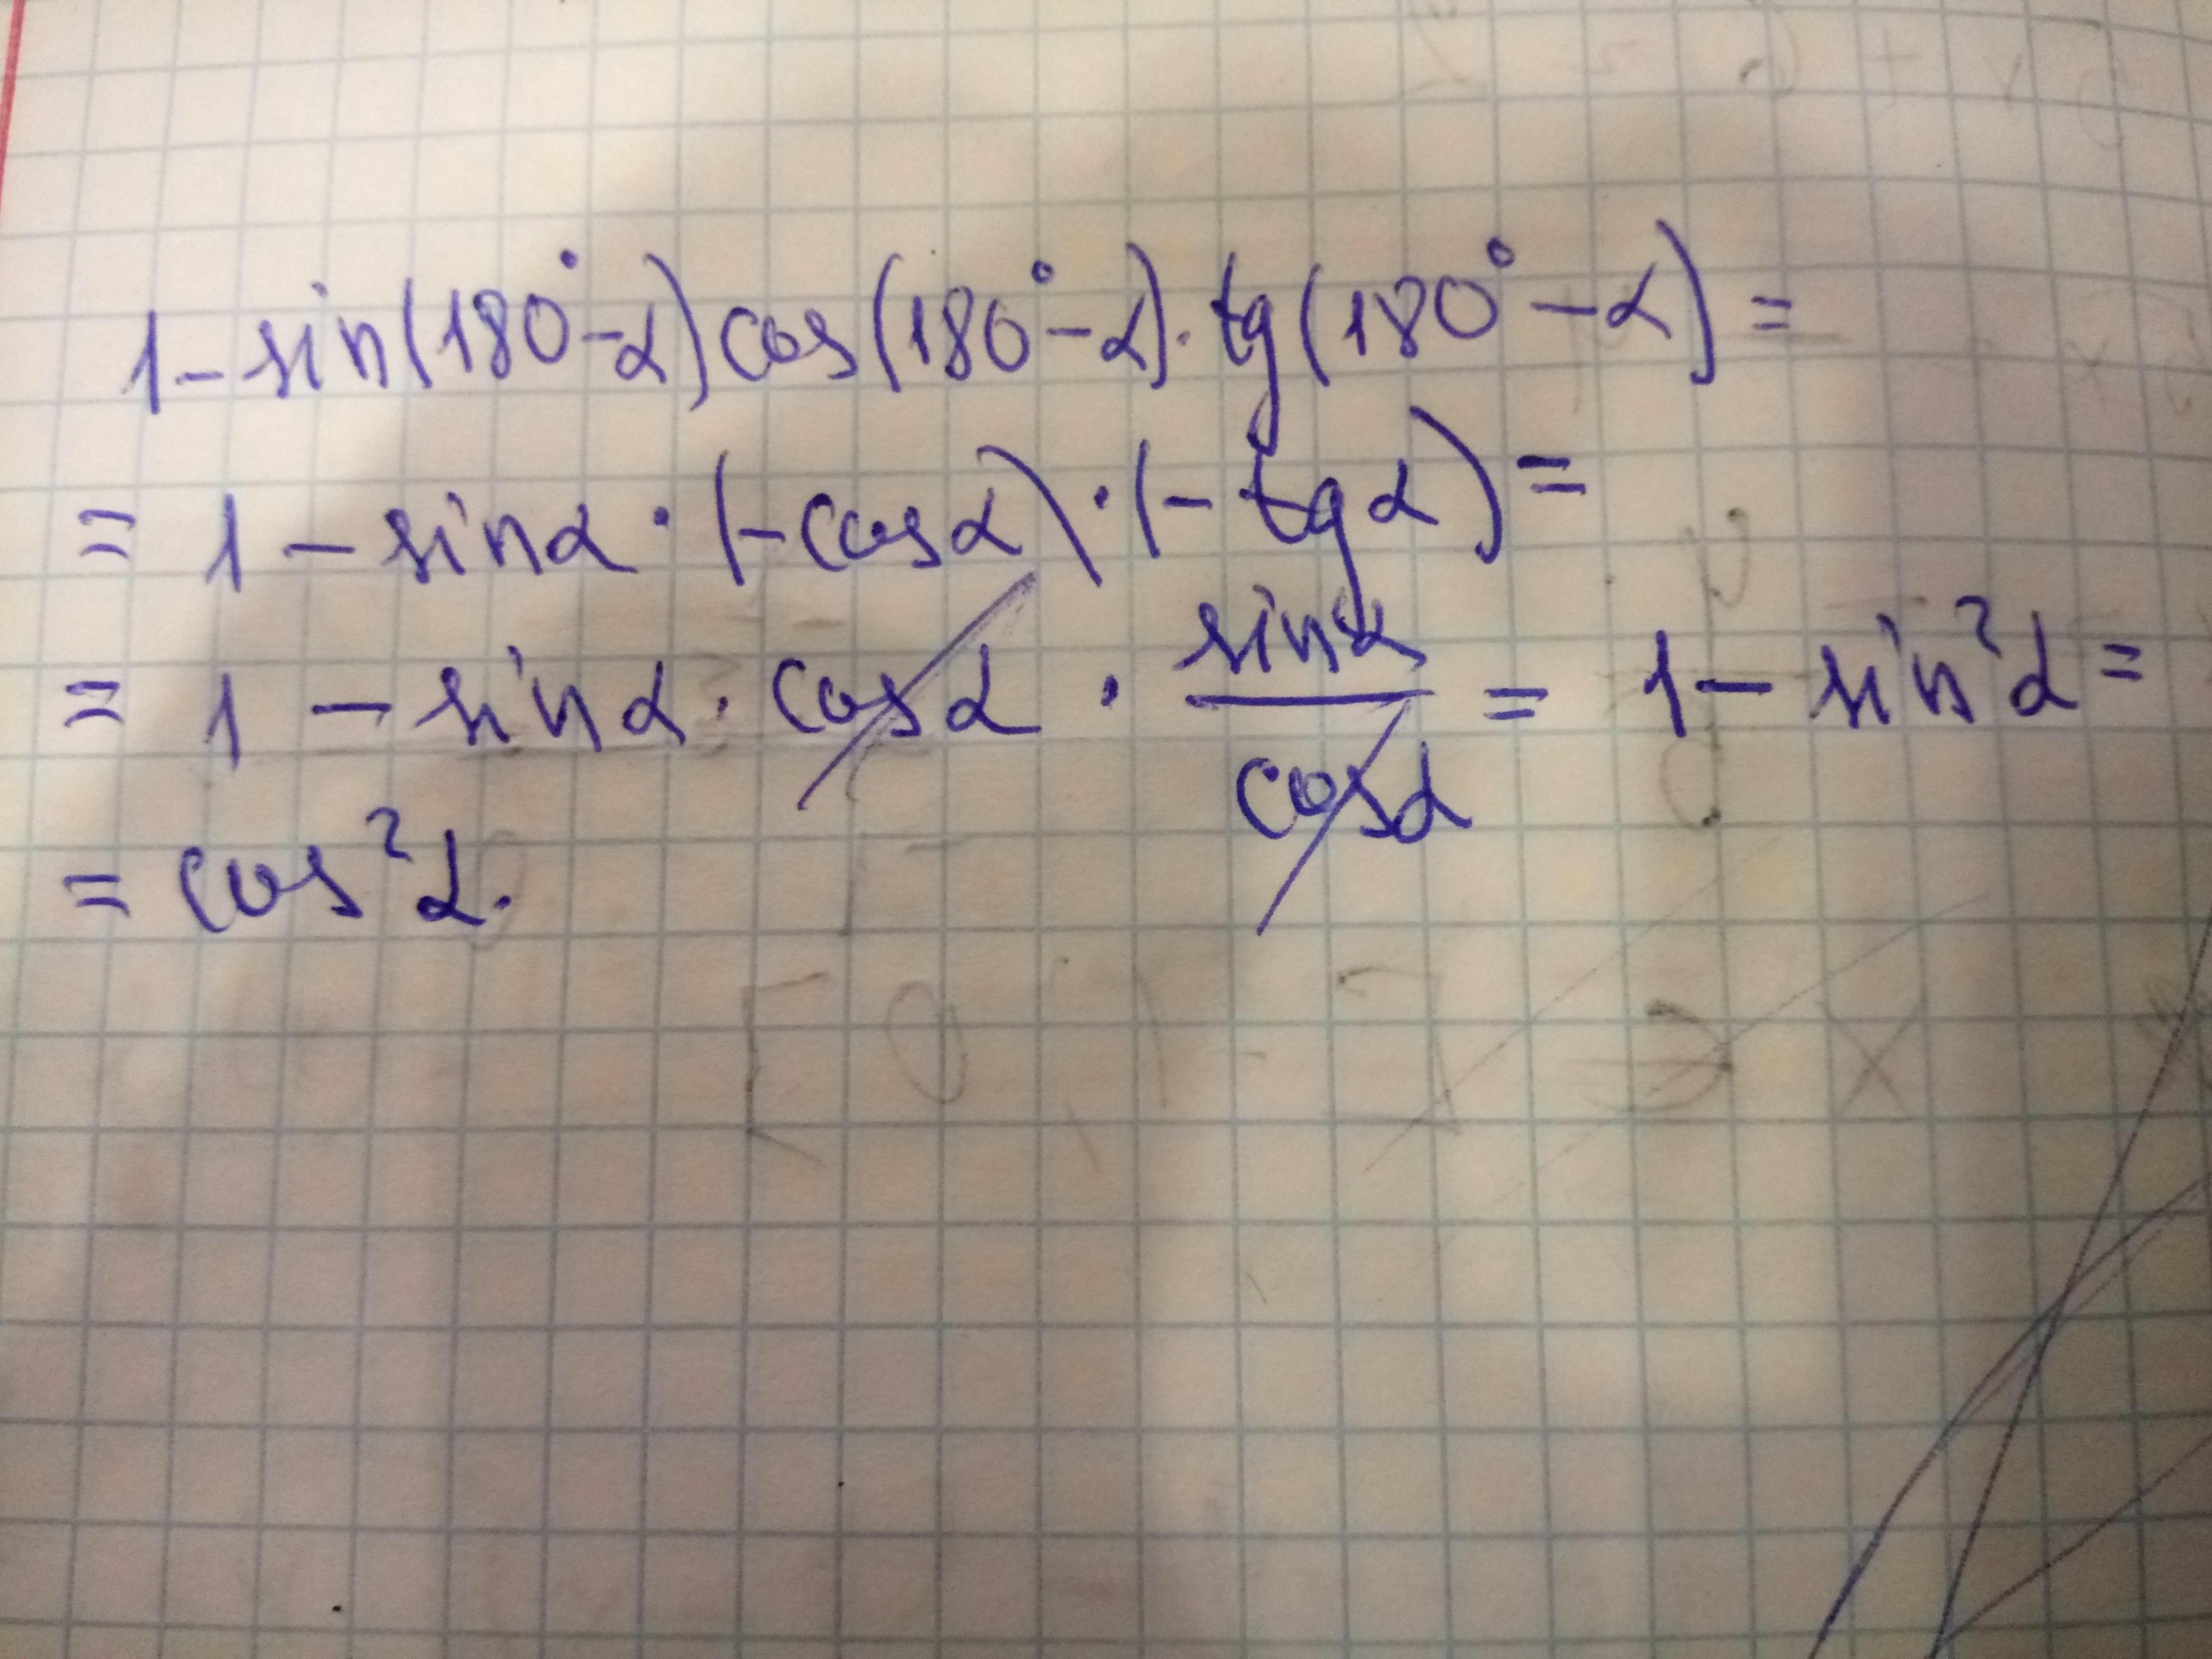 1 - sin(180° - α) cos(180° - α) · tg(180° - α) =
= 1 - sinα · (-cosα) · (-tgα) =
= 1 - sinα · cosα · sinα/cosα = 1 - sin²α =
= cos²α.